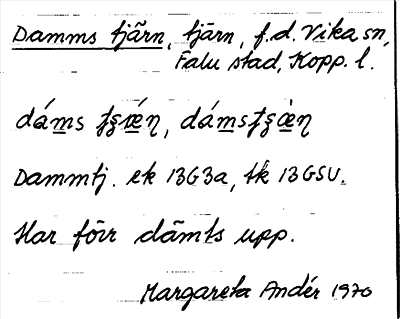 Damms tjärn, tjärn, f.d. Vika sn,
Falu stad, Kopp. l.
dáms
Dammtj. ek 13G3a, tk 13GSV.
Har förr dämts upp.
Margareta Andér 1970